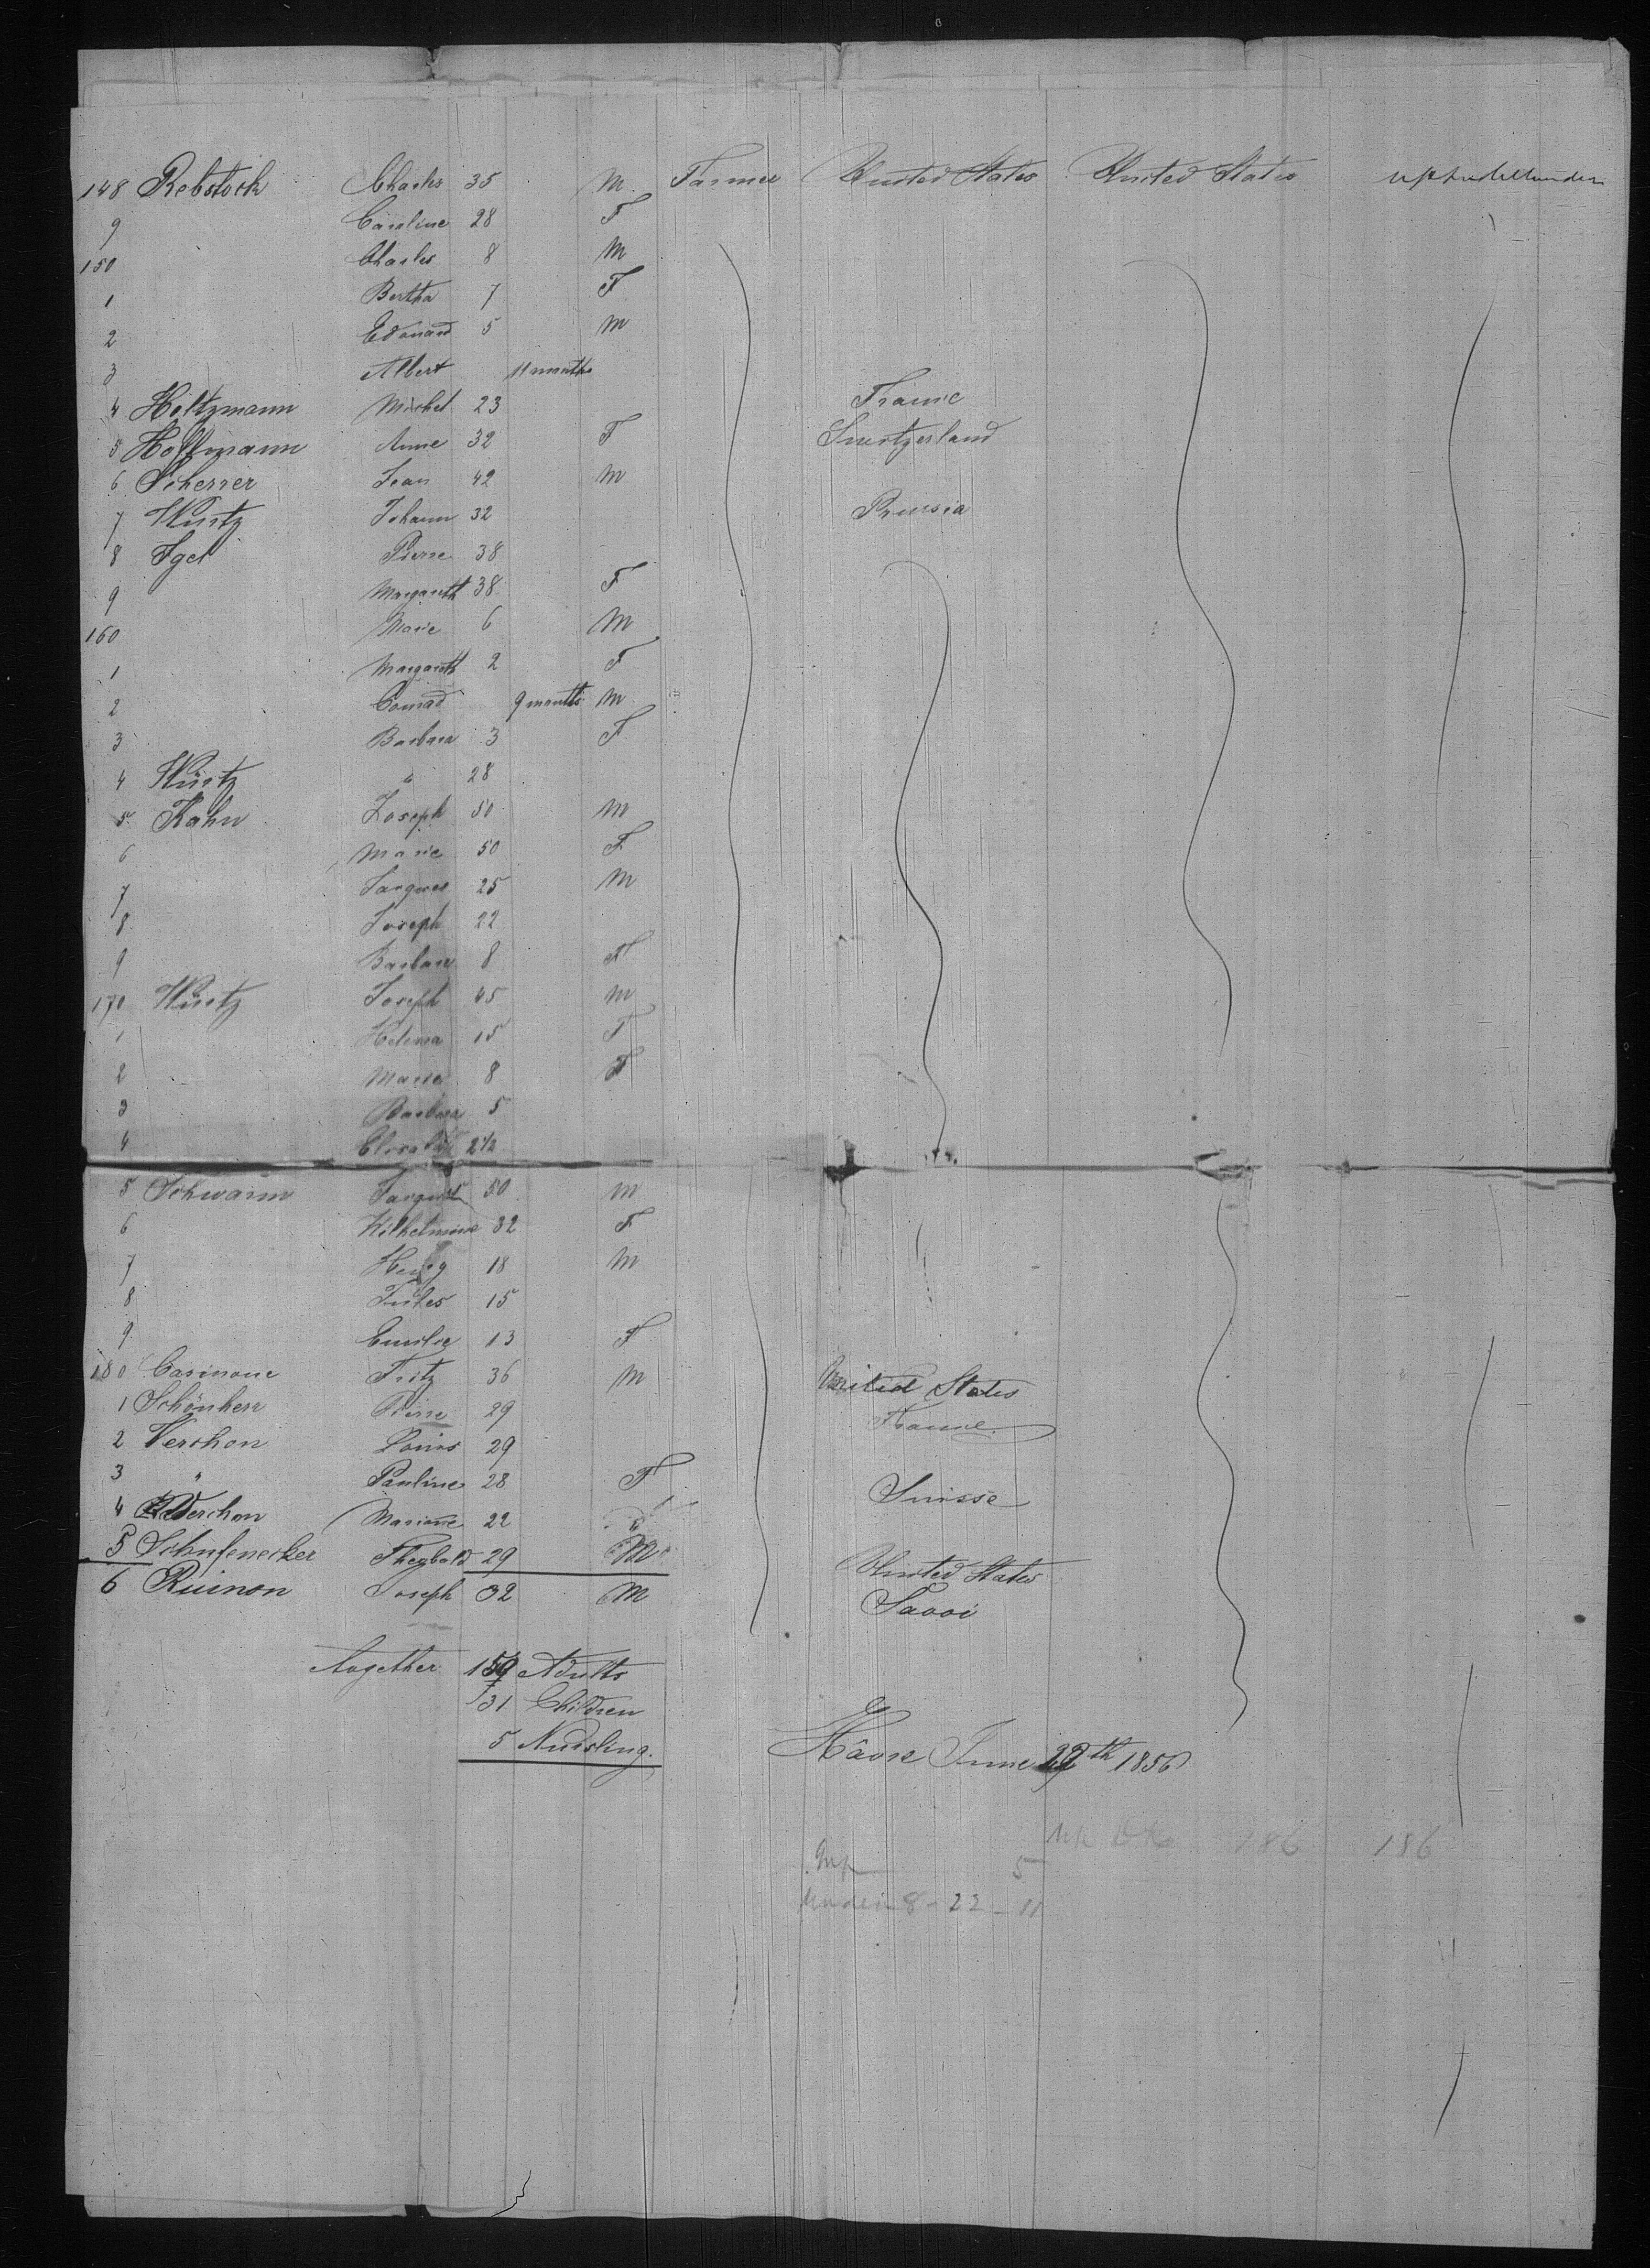 148 Rebstock Charles 35 M. Farmer United States United States
9 Caroline 28 F
150 Charles 8 M
1 Bertha 7 F
2 Edouard 5 M
3 Albert 11 months
4 Holtzmann Michel 23 France
5 Hoffmann Anne 32 F Switzerland
6 Scherrer Jean 42 M
7 Würtz Johann 32 Prussia
8 Igel Pierre 38
9 Margareth 38 F
160 Marie 6 M
1 Margareth 2 F
2 Conrad 9 months M
3 Barbara 3 F
4 Würtz " 28
5 Kahn Joseph 50 M
6 Marie 50 F
7 Jacques 25 M
8 Joseph 22
9 Barbara 8 F
170 Würtz Joseph 45 M
1 Helena 15 F
2 Maria 8 F
3 Barbara 5
4 2 1/2
5 Schwann Jacques 50 M
6 Wilhelmine 32 F
7 Henry 18 M
8 Jules 15
9 Emilie 13 F
180 Fritz 36 M United States
1 Schönherr Pierre 29 France
2 Verchon Louis 29
3 " Pauline 28 F Suisse
4 Verchon Marianne 22 "
5 Schufenecker Theybald 29 M United States
6 Ruinon Joseph 32 M Savoi
together 159 Adults
31 Children
5 Nursling.
Hâvre June 29th 1856
186 186
5
Under 8 - 22 - 11